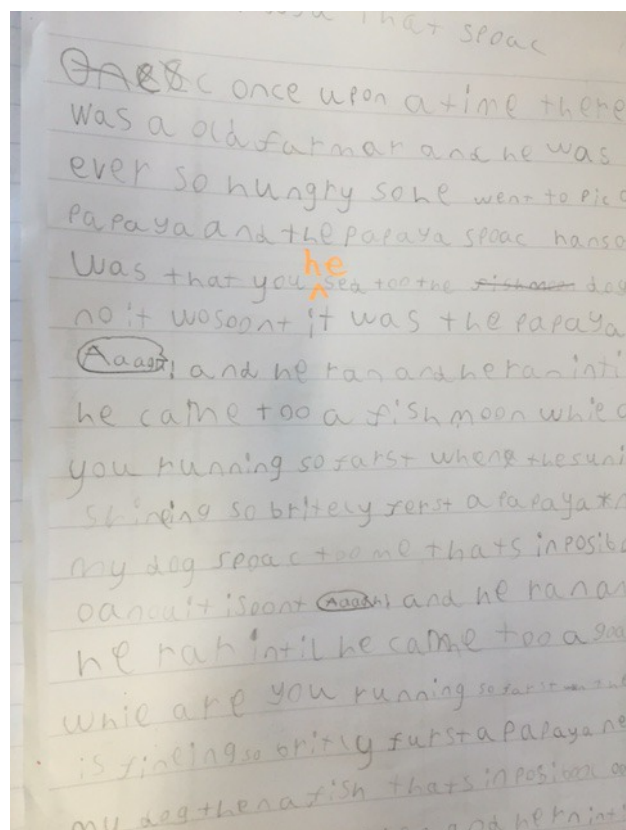 that spoac
once upon a time there
was a old farmar and he was
ever so hungry sohe went to pic
papaya and the papaya spoac
was that you he sed too the fishmoon dog
no it wosoont it was the papaya
Aaaagh! and he ran and he ran inti
he came too a fish moon while
you running so farst whene the suni
shineing so britely ferst a papaya
my dog spoac too me thats inposib
it isoont Aaagh! and he ran an
he ran intil he came too a goa
whie are you running so farst
is fineing so britly furst a papaya he
my dog then a fish thats inposibool
and he